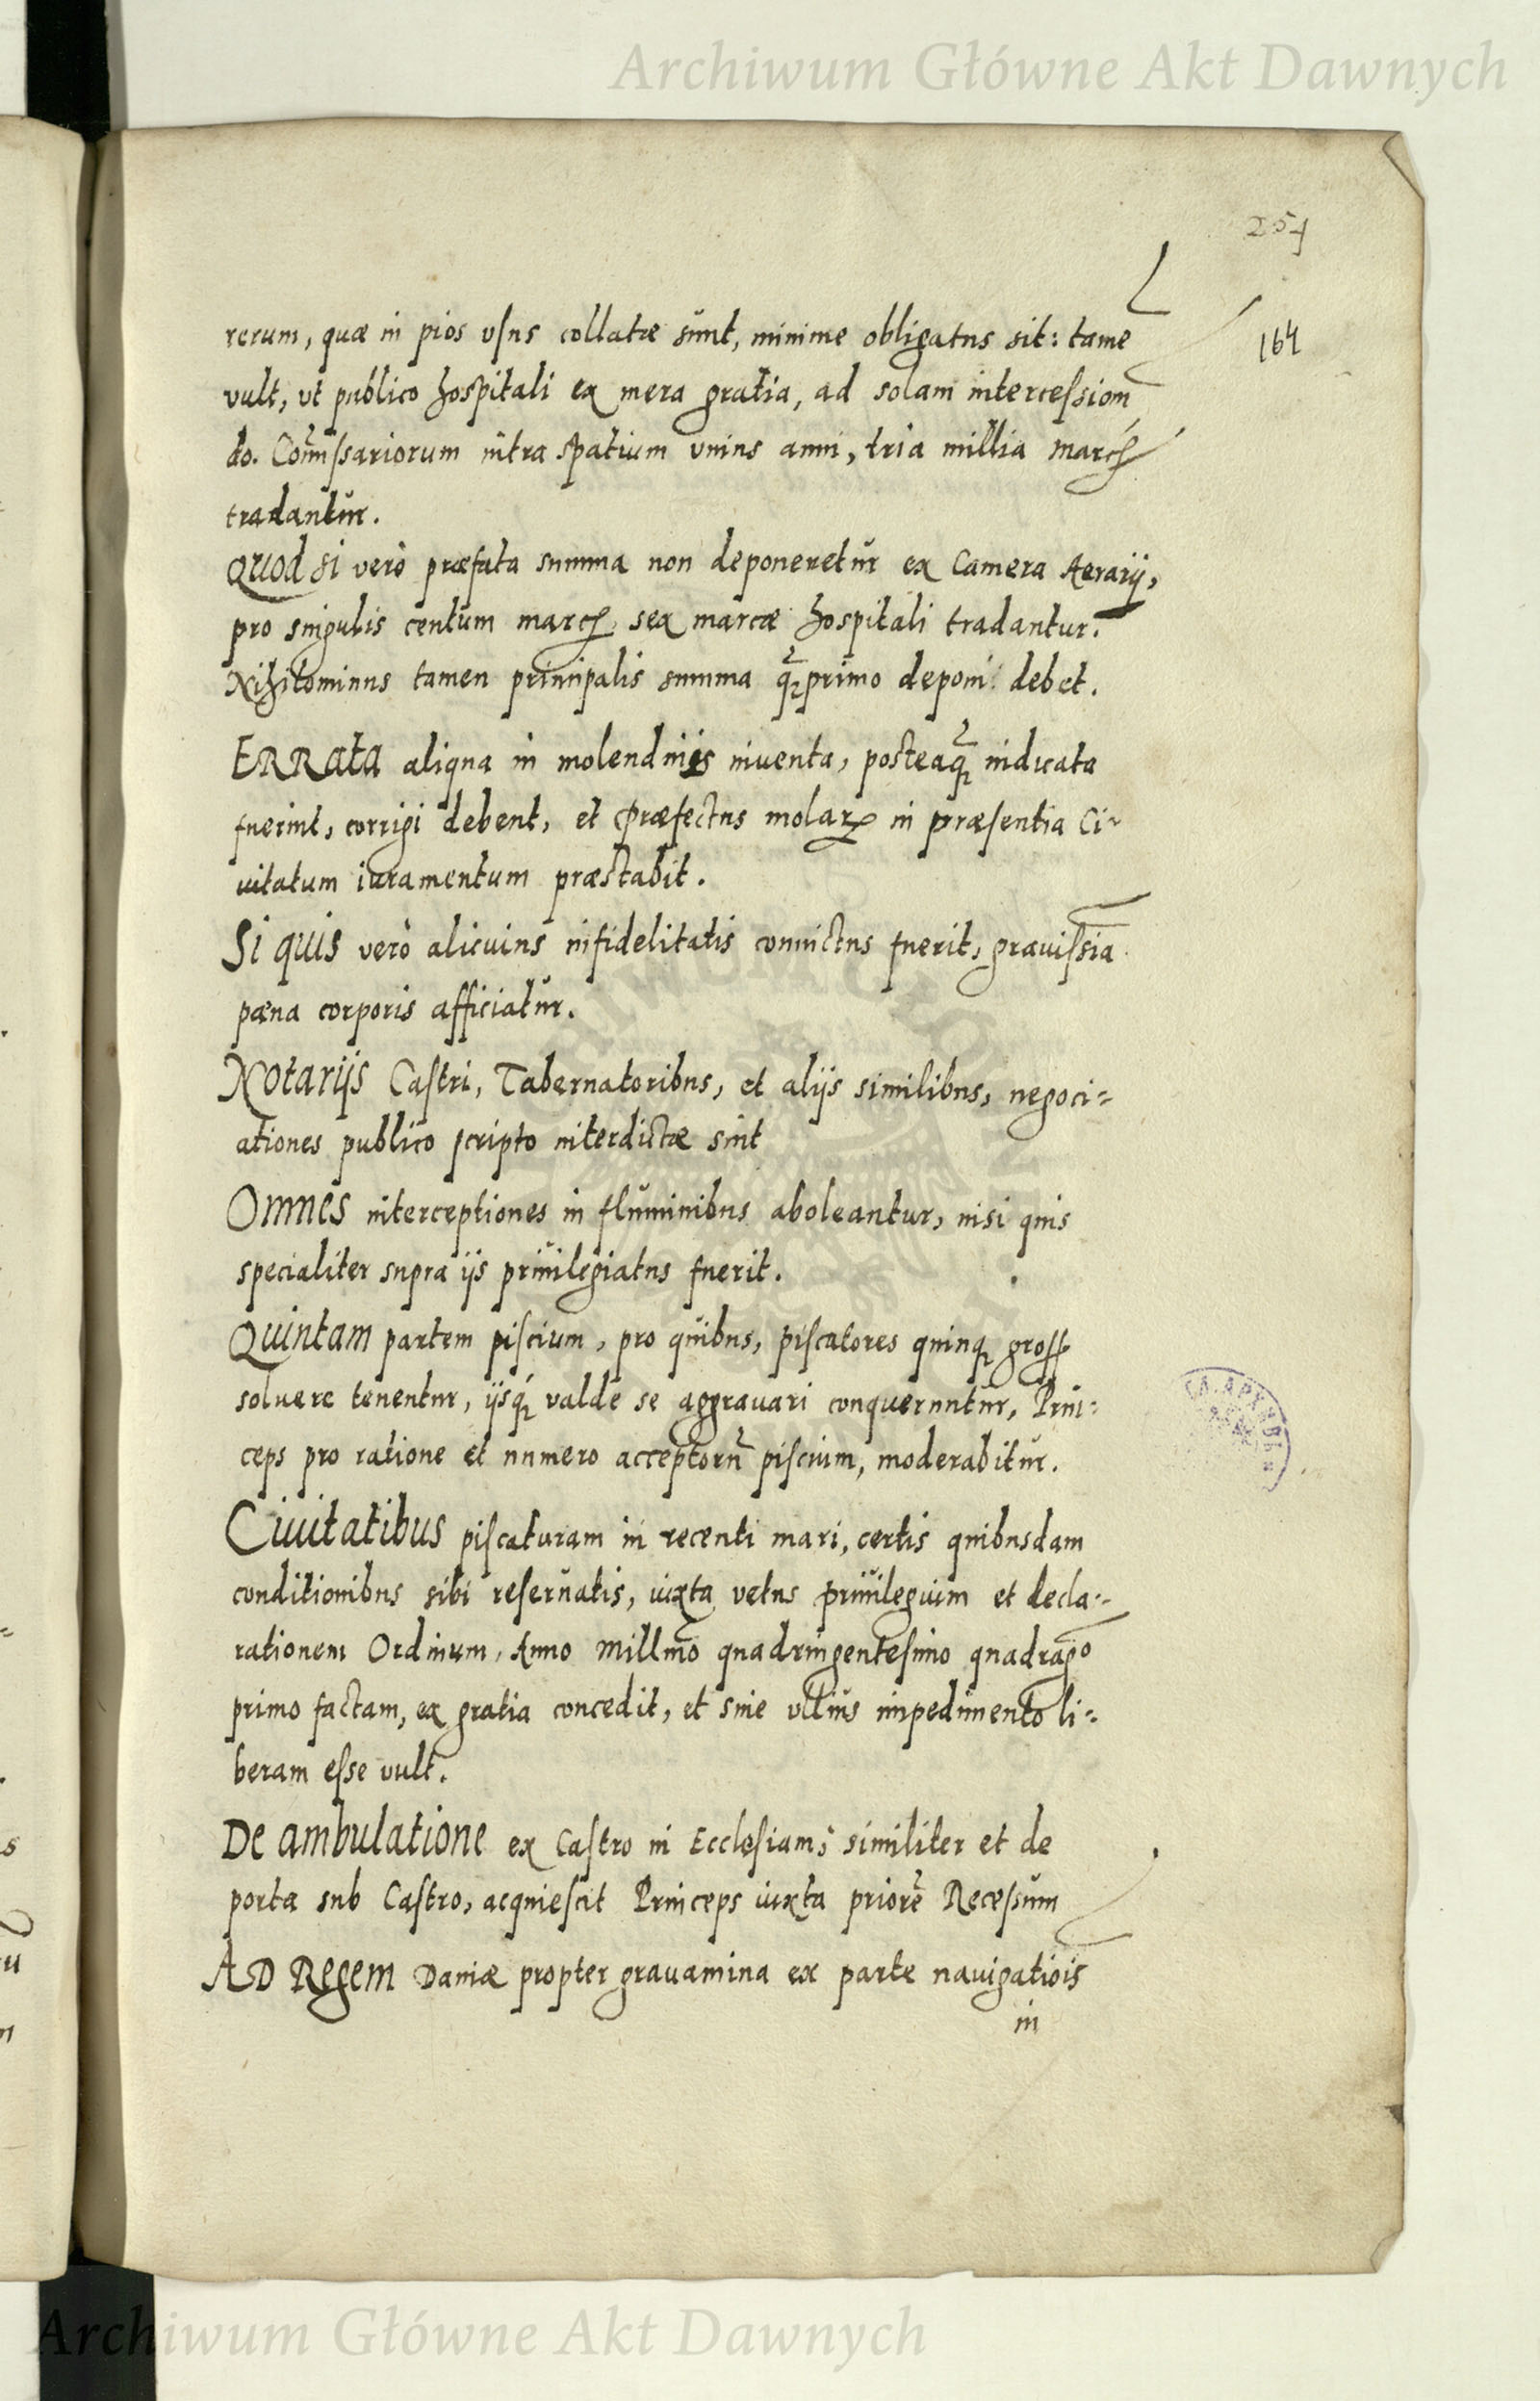 Archiwum Główne Akt Dawnych
257
164
rerum, quæ in pios vſus collatæ sunt, minime obligatus sit: tamē
vult, vt publico hospitali ex mera gratia, ad solam interceſsionē
do. Com̄iſsariorum intra spatium vnius anni, tria millia
tradantur.
Quod si verò præfata summa non deponeretur ex Camera Aerarij,
pro singulis centum sex marcæ hospitali tradantur.
Nihilominus tamen principalis summa primo deponi debet.
ERRata aliqua in molendinis inuenta, indicata
fuerint, corrigi debent, et Præfectus in præsentia Ci-
uitatum iuramentum præstabit.
Si quis verò alicuius infidelitatis conuictus fuerit, grauiſsīa
pæna corporis afficiatur.
Notarijs Caſtri, Tabernatoribus, et alijs similibus, negoci-
ationes publico ſcripto interdictæ sint
Omnes interceptiones in fluminibus aboleantur, nisi quis
specialiter supra ijs priuilegiatus fuerit.
Quintam partem piſcium, pro quibus, piſcatores quinq
soluere tenentur, ijsq́ valde se aggrauari conqueruntur, Prin-
ceps pro ratione et numero acceptorū piſcium, moderabitur.
Ciuitatibus piſcaturam in recenti mari, certis quibusdam
conditionibus sibi reſeruatis, iuxta vetus priuilegium et decla-
rationem Ordinum, Anno Millmo quadringenteſimo quadrag͞o
primo factam, ex gratia concedit, et sine ullius impedimento li-
beram eſse vult.
De ambulatione ex Caſtro in Eccleſiam, similiter et de
porta sub Caſtro, acquieſcit Princeps iuxta priorē Receſsum
AD Regem Daniæ propter grauamina ex parte nauigatiōis
in
Archiwum Główne Akt Dawnych